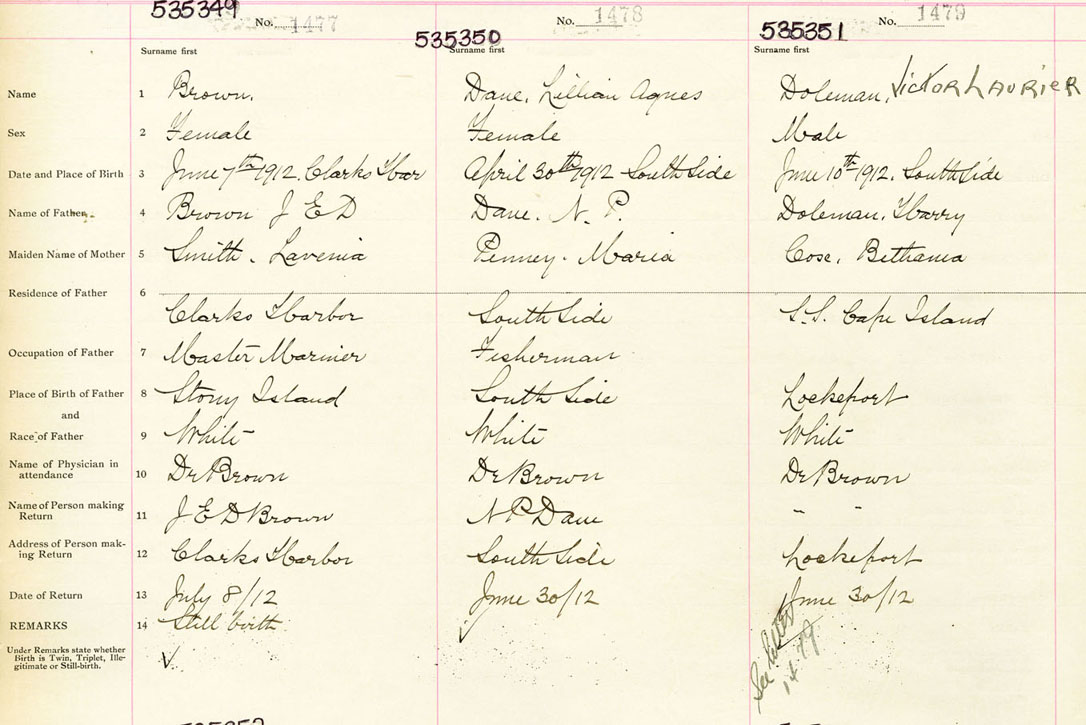 535349 No. 1477
535350 No. 1478
535351 No. 1479
Surname first Surname first Surname first
Name 1 Brown. Dane, Lillian Agnes Doleman, Victor Laurier
Sex 2 Female Female Male
Date and Place of Birth 3 June 7th 1912. Clarks Har April 30th 1912 South Side June 10th 1912. South Side
Name of Father 4 Brown J E D Dane. N. P. Doleman, Harry
Maiden Name of Mother 5 Smith. Lavenia Penney. Maria Cose, Bethania
Residence of Father 6 Clarks Harbor South Side S.S. Cape Island
Occupation of Father 7 Master Mariner Fisherman
Place of Birth of Father 8 Stony Island South Side Lockeport
and
Race of Father 9 White White White
Name of Physician in
attendance 10 Dr Brown Dr Brown Dr Brown
Name of Person making
Return 11 J E D Brown N P Dane " "
Address of Person mak-
ing Return 12 Clarks Harbor South Side Lockeport
Date of Return 13 July 8/12 June 30/12 June 30/12
REMARKS 14 Still birth
Under Remarks state whether
Birth is Twin, Triplet, Ille-
gitimate or Still-birth.
See Letter